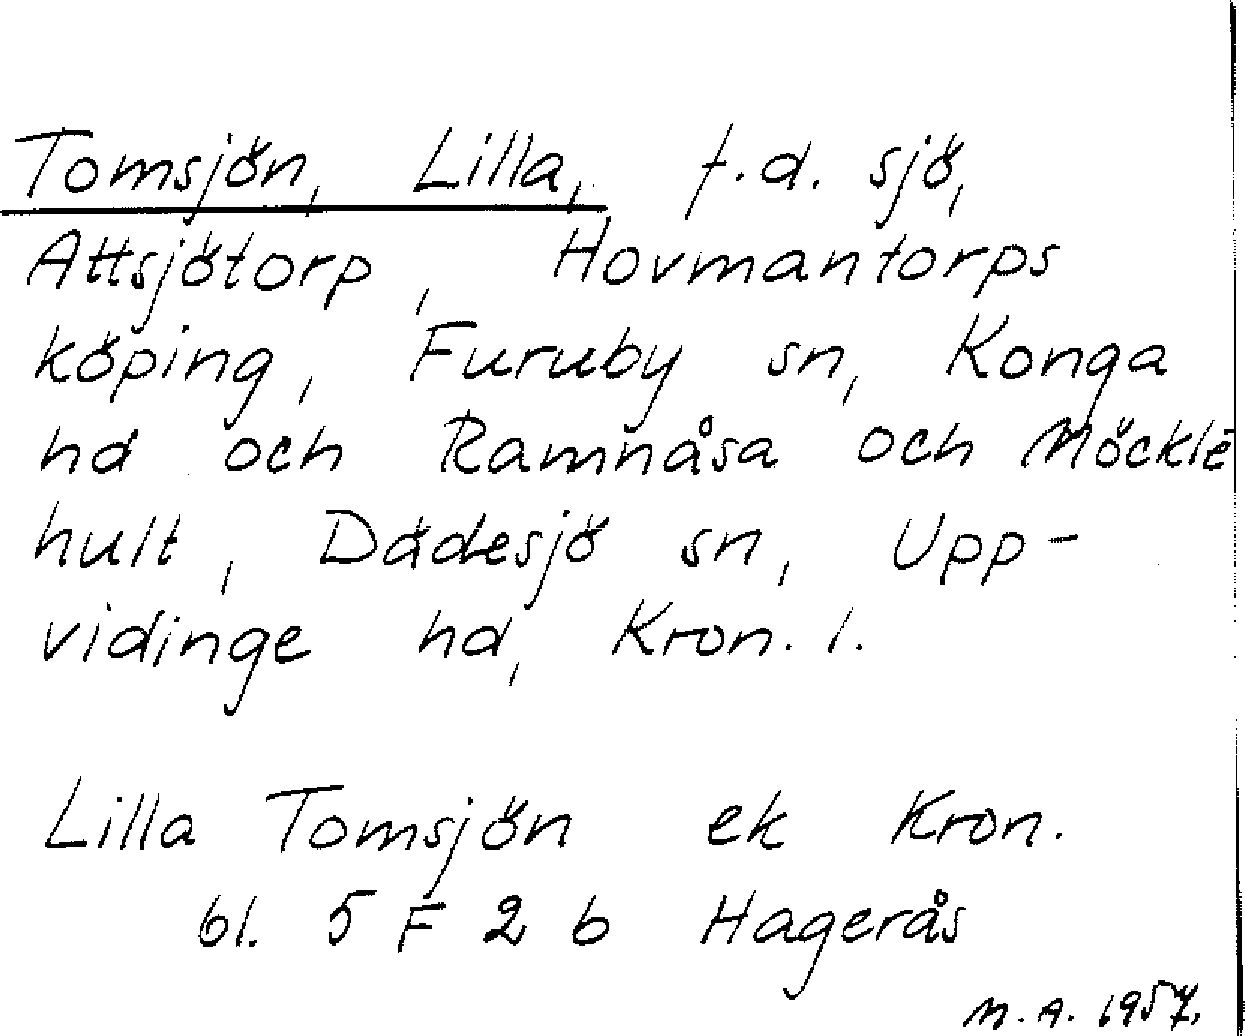 Tomsjön, Lilla, f.d. sjö,
Attsjötorp, Hovmantorps
köping, Furuby sn, Konga
hd och Ramnåsa och Möckle-
hult, Dädesjö sn, Upp-
vidinge hd, Kron. l.
Lilla Tomsjön ek Kron.
bl. 5 F 2 b Hagerås
M.A. 1957.